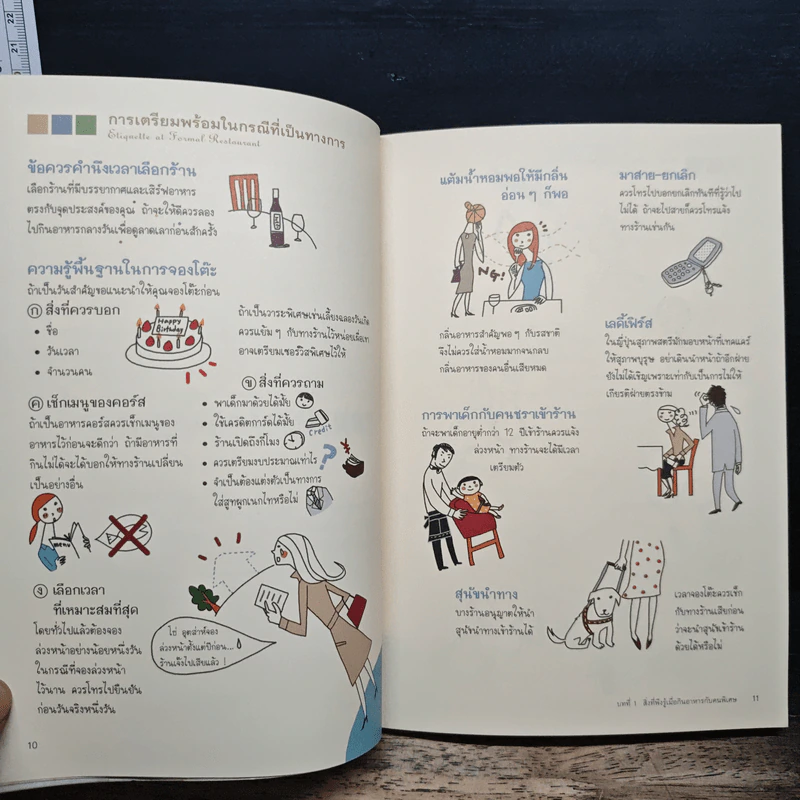 การเตรียมพร้อมในกรณีที่เป็นทางการ
Etiquette at Formal Restaurant
ข้อควรคำนึงเวลาเลือกร้าน
เลือกร้านที่มีบรรยากาศและเสิร์ฟอาหาร
ตรงกับจุดประสงค์ของคุณ ถ้าจะให้ดีควรลอง
ไปกินอาหารกลางวันเพื่อดูลาดเลาก่อนสักครั้ง
ความรู้พื้นฐานในการจองโต๊ะ
ถ้าเป็นวันสำคัญขอแนะนำให้คุณจองโต๊ะก่อน
ก สิ่งที่ควรบอก
• ชื่อ
• วันเวลา
• จำนวนคน
Happy Birthday
ถ้าเป็นวาระพิเศษเช่นเลี้ยงฉลองวันเกิด
ควรแย้ม ๆ กับทางร้านไว้หน่อยเผื่อเขา
อาจเตรียมเซอร์วิสพิเศษไว้ให้
ข สิ่งที่ควรถาม
• พาเด็กมาด้วยได้มั้ย
• ใช้เครดิตการ์ดได้มั้ย
Credit
• ร้านเปิดถึงกี่โมง
• ควรเตรียมงบประมาณเท่าไร
?
• จำเป็นต้องแต่งตัวเป็นทางการ
ใส่สูทผูกเนกไทหรือไม่
ค เช็กเมนูของคอร์ส
ถ้าเป็นอาหารคอร์สควรเช็กเมนูของ
อาหารไว้ก่อนจะดีกว่า ถ้ามีอาหารที่
กินไม่ได้จะได้บอกให้ทางร้านเปลี่ยน
เป็นอย่างอื่น
menu
ง เลือกเวลา
ที่เหมาะสมที่สุด
โดยทั่วไปแล้วต้องจอง
ล่วงหน้าอย่างน้อยหนึ่งวัน
ในกรณีที่จองล่วงหน้า
ไว้นาน ควรโทรไปยืนยัน
ก่อนวันจริงหนึ่งวัน
โธ่ อุตส่าห์จอง
ล่วงหน้าตั้งแต่ปีก่อน...
ร้านเจ๊งไปเสียแล้ว !
10
แต้มน้ำหอมพอให้มีกลิ่น
อ่อน ๆ ก็พอ
NG!
กลิ่นอาหารสำคัญพอ ๆ กับรสชาติ
จึงไม่ควรใส่น้ำหอมมากจนกลบ
กลิ่นอาหารของคนอื่นเสียหมด
การพาเด็กกับคนชราเข้าร้าน
ถ้าจะพาเด็กอายุต่ำกว่า 12 ปีเข้าร้านควรแจ้ง
ล่วงหน้า ทางร้านจะได้มีเวลา
เตรียมตัว
สุนัขนำทาง
บางร้านอนุญาตให้นำ
สุนัขนำทางเข้าร้านได้
มาสาย-ยกเลิก
ควรโทรไปบอกยกเลิกทันทีที่รู้ว่าไป
ไม่ได้ ถ้าจะไปสายก็ควรโทรแจ้ง
ทางร้านเช่นกัน
เลดี้เฟิร์ส
ในญี่ปุ่นสุภาพสตรีมักมอบหน้าที่เทคแคร์
ให้สุภาพบุรุษ อย่าเดินนำหน้าถ้าอีกฝ่าย
ยังไม่ได้เชิญเพราะเท่ากับเป็นการไม่ให้
เกียรติฝ่ายตรงข้าม
เวลาจองโต๊ะควรเช็ก
กับทางร้านเสียก่อน
ว่าจะนำสุนัขเข้าร้าน
ด้วยได้หรือไม่
บทที่ 1 สิ่งที่พึงรู้เมื่อกินอาหารกับคนพิเศษ 11